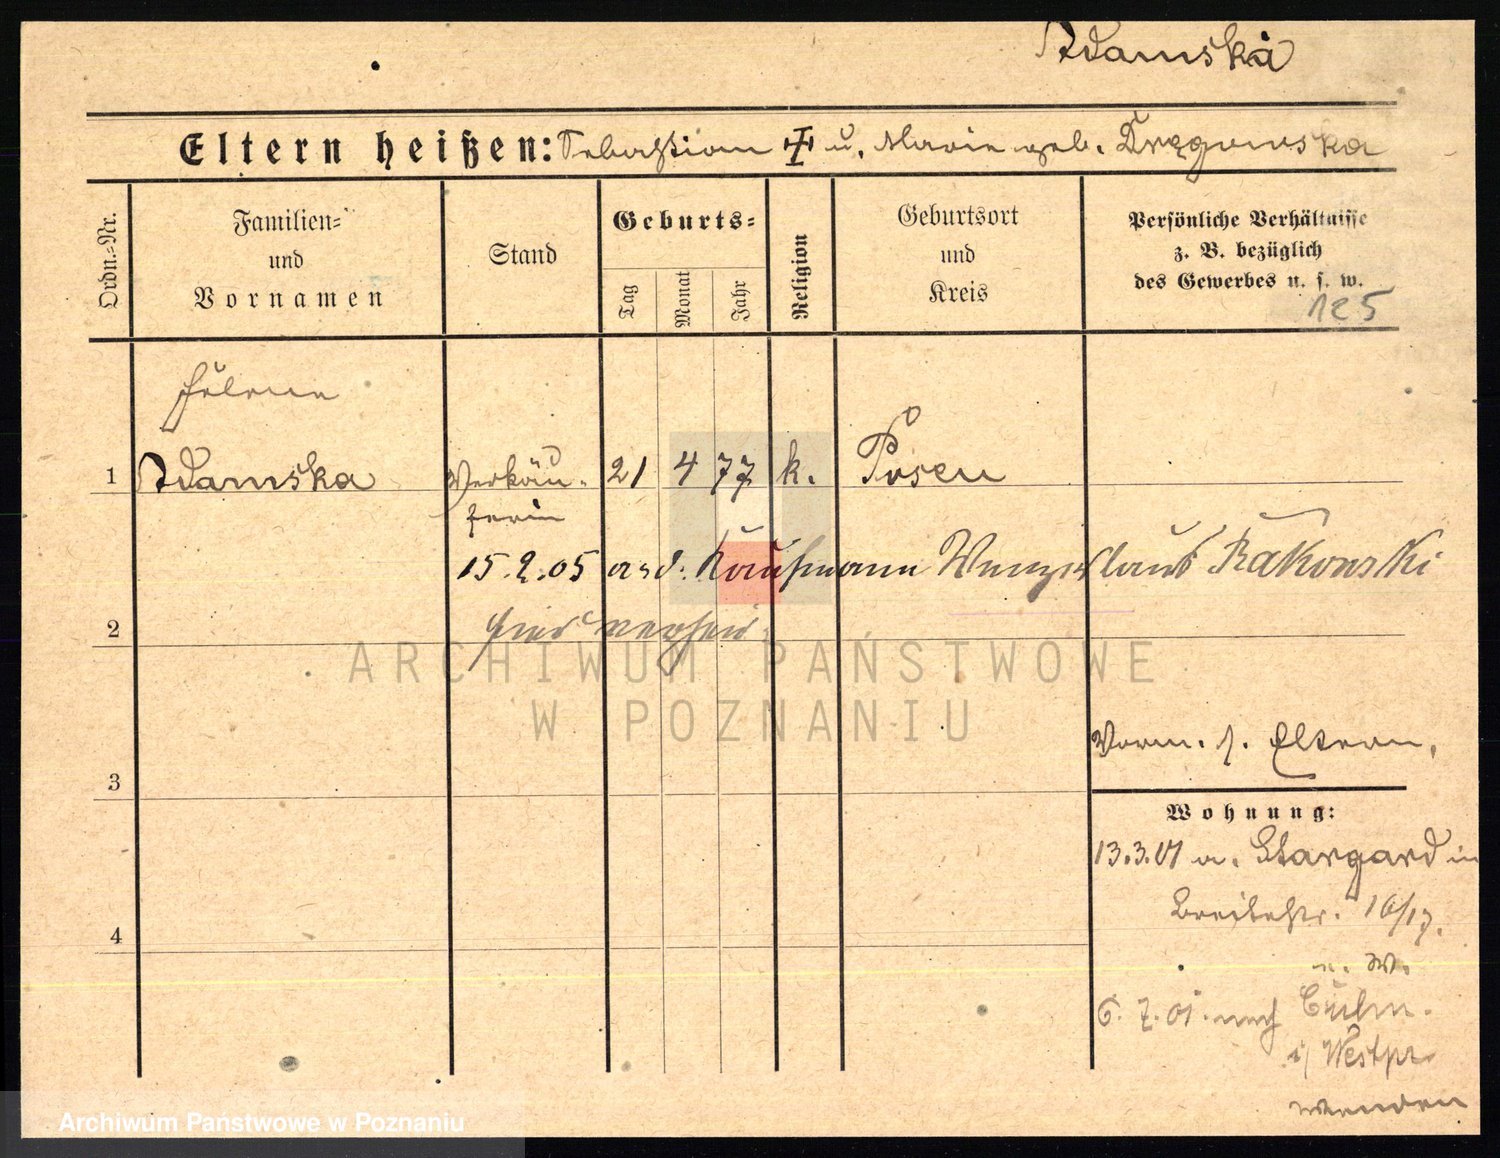 Adamska
Eltern heißen: Sebastian ✠ u. Marie geb. Drągowska
Ordn.-Nr.
Familien- und Vornamen
Stand
Geburts-
Tag
Monat
Jahr
Religion
Geburtsort und Kreis
Persönliche Verhältnisse
z. B. bezüglich
des Gewerbes u. s. w.
125
Helene
1 Adamska Verkäu- 21 4 77 k. Posen
ferin
15.2.05 a. d. Kaufmann Wenzeslaus Rakowski
2 hier verh.
ARCHIWUM PAŃSTWOWE
W POZNANIU
Vorm. s. Eltern.
3
Wohnung:
13.3.01 a. Stargard in
Breitestr. 16/17.
4
n. W.
6. 7. 01. nach Culm
i/ Westpr.
wenden
Archiwum Państwowe w Poznaniu